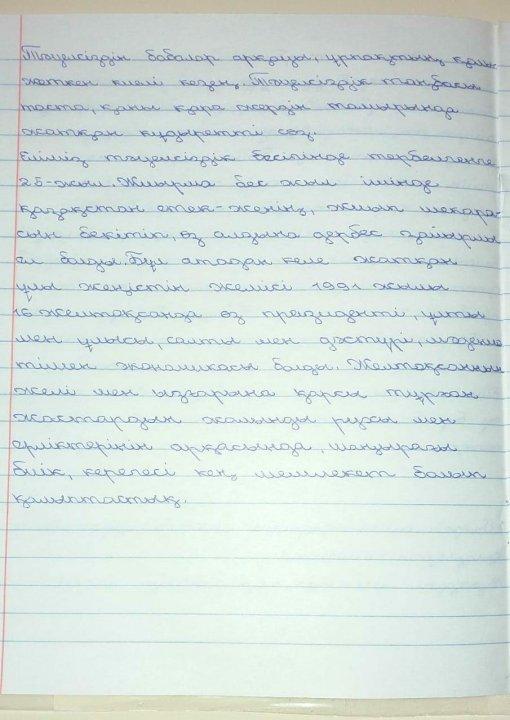 Тәуелсіздік бабалар арқауы, ұрпақтың қолы
жеткен киелі кезең. Тәуелсіздік таңбасы
таста, қаны қара жердің тамырында
жатқан құдыретті сөз.
Еліміз тәуелсіздік бесігінде тербелгенге
25-жыл. Жиырма бес жыл ішінде
қазақстан етек-жеңін, жиып шекара-
сын бекітіп, өз алдына дербес айырым
ел болды. Бұл атадан келе жатқан
ұлы жеңістің желісі 1991 жылы
16 желтоқсанда өз президенті, ұлты
мен ұлысы, салты мен дәстүрі, мәдение
тімен экономикасы болды. Желтоқсанның
желі мен ызғарына қарсы тұрған
жастардың жалынды рухы мен
ерліктерінің арқасында, шаңырағы
биік, керегесі кең мемлекет болып
қалыптастық.